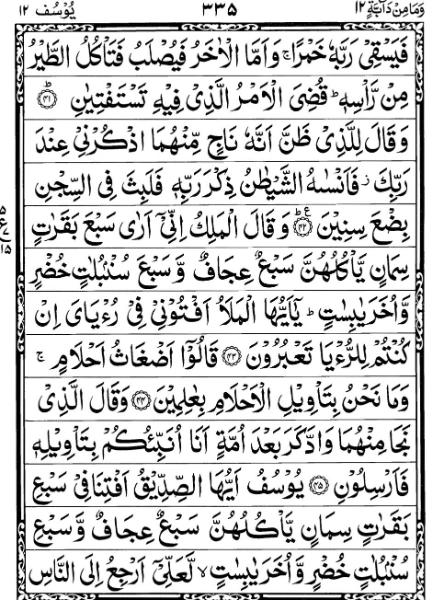 وَمَا مِنْ دَآبَّةٍ ١٢
٣٣٥
يُوْسُف ١٢
فَيَسْقِىْ رَبَّهٗ خَمْرًا ۚ وَاَمَّا الْاٰخَرُ فَيُصْلَبُ فَتَاْكُلُ الطَّيْرُ
مِنْ رَّاْسِهٖ ؕ قُضِىَ الْاَمْرُ الَّذِىْ فِيْهِ تَسْتَفْتِيٰنِ ﴿۴۱﴾
وَقَالَ لِلَّذِىْ ظَنَّ اَنَّهٗ نَاجٍ مِّنْهُمَا اذْكُرْنِىْ عِنْدَ
رَبِّكَ ز فَاَنْسٰهُ الشَّيْطٰنُ ذِكْرَ رَبِّهٖ فَلَبِثَ فِى السِّجْنِ
بِضْعَ سِنِيْنَ ﴿۴۲﴾ؕ ع وَقَالَ الْمَلِكُ اِنِّىْۤ اَرٰى سَبْعَ بَقَرٰتٍ
سِمَانٍ يَّاْكُلُهُنَّ سَبْعٌ عِجَافٌ وَّسَبْعَ سُنْۢبُلٰتٍ خُضْرٍ
وَّاُخَرَ يٰبِسٰتٍ ؕ يٰۤاَيُّهَا الْمَلَاُ اَفْتُوْنِىْ فِىْ رُءْيَاىَ اِنْ
كُنْتُمْ لِلرُّءْيَا تَعْبُرُوْنَ ﴿۴۳﴾ قَالُوْۤا اَضْغَاثُ اَحْلَامٍ ۚ
وَمَا نَحْنُ بِتَاْوِيْلِ الْاَحْلَامِ بِعٰلِمِيْنَ ﴿۴۴﴾ وَقَالَ الَّذِىْ
نَجَا مِنْهُمَا وَادَّكَرَ بَعْدَ اُمَّةٍ اَنَا اُنَبِّئُكُمْ بِتَاْوِيْلِهٖ
فَاَرْسِلُوْنِ ﴿۴۵﴾ يُوْسُفُ اَيُّهَا الصِّدِّيْقُ اَفْتِنَا فِىْ سَبْعِ
بَقَرٰتٍ سِمَانٍ يَّاْكُلُهُنَّ سَبْعٌ عِجَافٌ وَّسَبْعِ
سُنْۢبُلٰتٍ خُضْرٍ وَّاُخَرَ يٰبِسٰتٍ ۙ لَّعَلِّىْۤ اَرْجِعُ اِلَى النَّاسِ